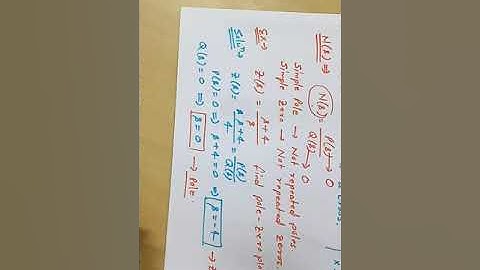 N(s) ⇒ N(s) = P(s) → 0 / Q(s) → 0
Simple Pole → Not repeated poles
Simple Zero → Not repeated zeros.
Ex → Z(s) = s+4 / s find pole-zero
Z(s) = s+4 = P(s) / Q(s)
P(s) = 0 ⇒ s+4 = 0 ⇒ s = -4 →
Q(s) = 0 ⇒ s = 0 → Pole.